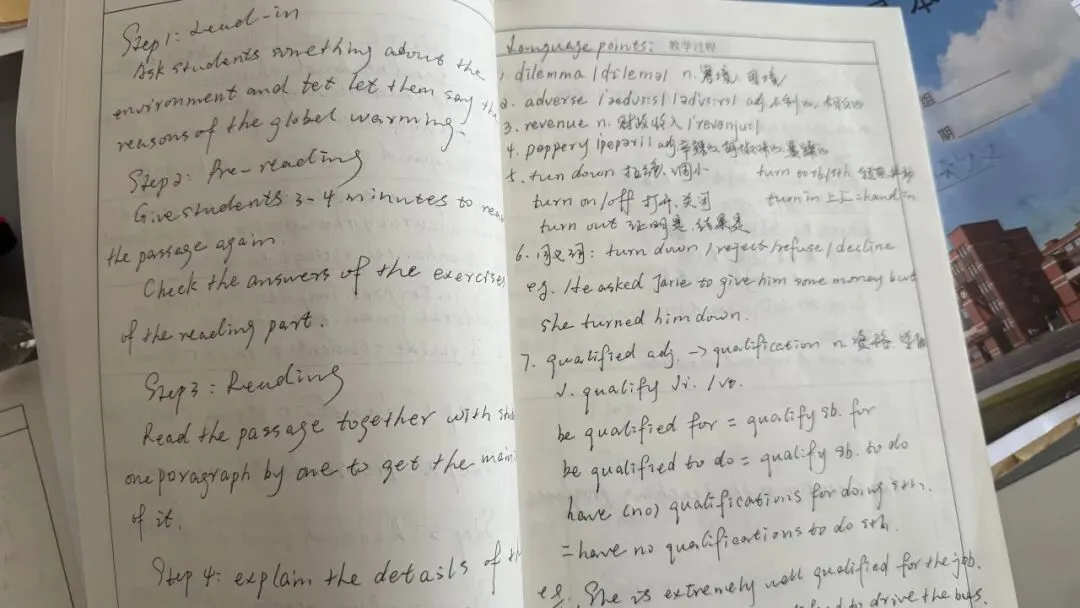 Step 1: Lead-in
Ask students something about the
environment and tet let them say the
reasons of the global warming.
Step 2: Pre-reading
Give students 3-4 minutes to rea
the passage again.
Check the answers of the exercises
of the reading part.
Step 3: Reading
Read the passage together with
one paragraph by one to get the main
of it.
Step 4: explain the details of
Language points: 教学过程
1. dilemma /dilemə/ n. 窘境、困境
2. adverse /ˈædvɜːs/ /ədˈvɜːs/ adj 不利的,相反的
3. revenue n. 财政收入 /ˈrevənjuː/
4. peppery /pepəri/ adj 辛辣的
5. tun down 拒绝、调小 turn
turn on/off 打开、关闭 turn in 上交=hand in
turn out 证明是、结果是
6. 同义词: turn down / reject / refuse / decline
eg. He asked Jane to give him some money but
she turned him down.
7. qualified adj. → qualification n. 资格
v. qualify vi. / vt.
be qualified for = qualify sb. for
be qualified to do = qualify sb. to do
have (no) qualifications for doing sth.
= have no qualifications to do sth.
eg. She is extremely well qualified for the job.
to drive the bus.
组
期
本